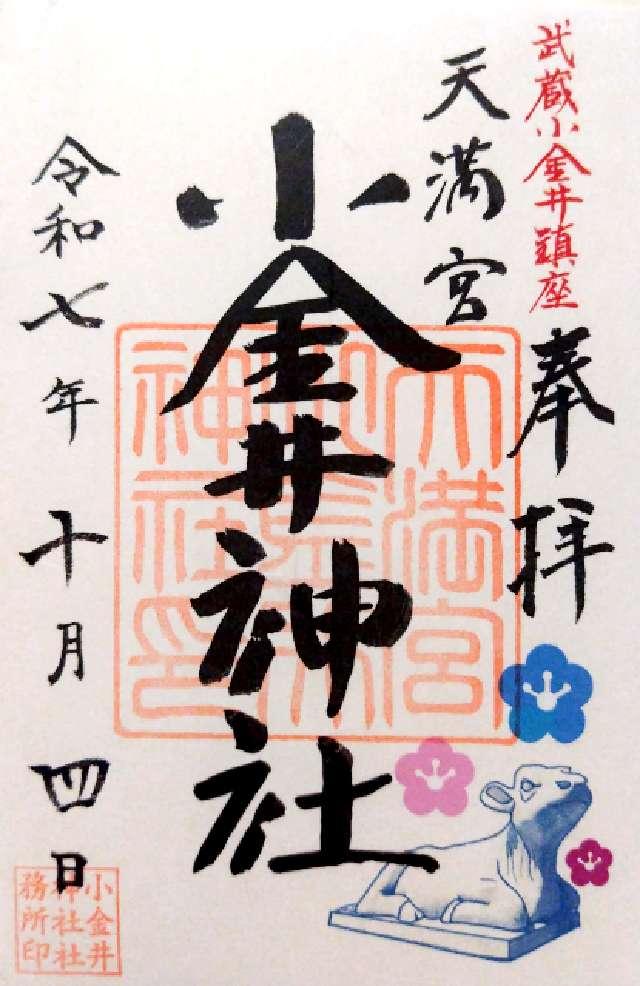 武蔵小金井鎮座
奉拝
天満宮
小金井神社
令和七年十月四日
天満宮
小金井
神社印
小金井
神社社
務所印